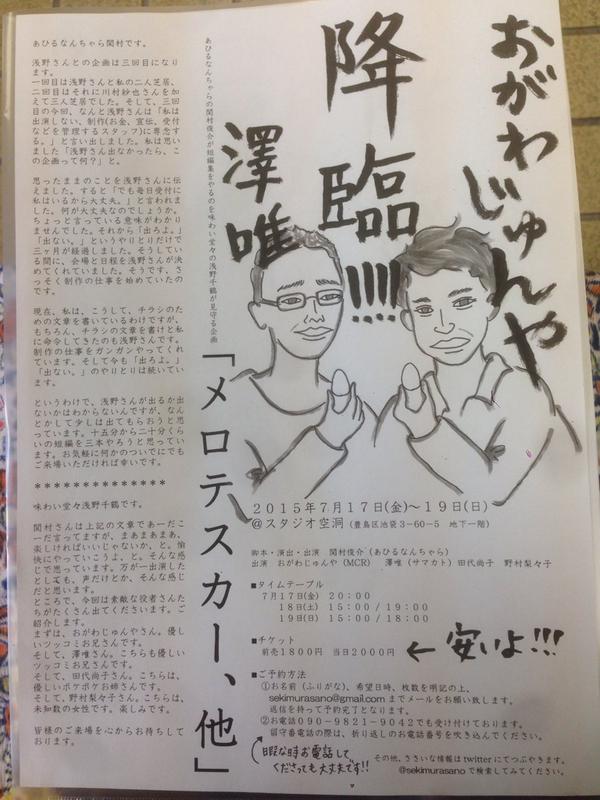 おがわじゅんや
降臨!!!!
澤唯
あひるなんちゃらの関村俊介が短編集をやるのを味わい堂々の浅野千鶴が見守る企画
「メロテスカー、他」
あひるなんちゃら関村です。
浅野さんとの企画は三回目になり
ます。
一回目は浅野さんと私の二人芝居、
二回目はそれに川村紗也さんを加
えて三人芝居でした。そして、三回
目の今回、なんと浅野さんは「私は
出演しない、制作(お金、宣伝、受付
などを管理するスタッフ)に専念す
る。」と言い出しました。私は思い
ました「浅野さん出なかったら、こ
の企画って何?」と。
思ったままのことを浅野さんに伝
えました。すると「でも毎日受付に
私はいるから大丈夫。」と言われま
した。何が大丈夫なのでしょうか。
ちょっと言っている意味がわかり
ませんでした。それから「出ろよ。」
「出ない。」というやりとりだけで
三ヶ月が経過しました。そうしてい
る間に、会場と日程を浅野さんが決
めてくれていました。そうです、さ
っそく制作の仕事を始めていたの
です。
現在、私は、こうして、チラシのた
めの文章を書いているわけですが、
もちろん、チラシの文章を書けと私
に命令してきたのも浅野さんです。
制作の仕事をガンガンやってくれ
ています。そして今も「出ろよ。」
「出ない。」のやりとりは続いてい
ます。
というわけで、浅野さんが出るか出
ないかはわからないんですが、なん
とかして少しは出てもらおうと思
っています。十五分から二十分くら
いの短編を三本やろうと思ってい
ます。お気軽に何かのついでにでも
ご来場いただければ幸いです。
**************
味わい堂々浅野千鶴です。
関村さんは上記の文章であーだこ
ーだ言ってますが、まあまあまあ、
楽しければいいじゃないか、と。愉
快にやっていこうよ、と。そんな感
じで思っています。万が一出演した
としても、声だけとか、そんな感じ
だと思います。
ところで、今回は素敵な役者さんた
ちがたくさん出てくださいます。ご
紹介します。
まずは、おがわじゅんやさん。優し
いツッコミお兄さんです。
そして、澤唯さん。こちらも優しい
ツッコミお兄さんです。
そして、田代尚子さん。こちらは、
優しいボケボケお姉さんです。
そして、野村梨々子さん。こちらは、
未知数の女性です。楽しみです。
皆様のご来場を心からお待ちして
おります。
2015年7月17日(金)~19日(日)
@スタジオ空洞(豊島区池袋3-60-5 地下一階)
脚本・演出・出演 関村俊介(あひるなんちゃら)
出演 おがわじゅんや(MCR) 澤唯(サマカト) 田代尚子 野村梨々子
■タイムテーブル
7月17日(金) 20:00
18日(土) 15:00/19:00
19日(日) 15:00/18:00
■チケット
前売1800円 当日2000円 ← 安いよ!!!
■ご予約方法
①お名前(ふりがな)、希望日時、枚数を明記の上、
sekimurasano@gmail.comまでメールをお願い致します。
返信を持って予約完了となります。
②お電話090-9821-9042でも受け付けております。
留守番電話の際は、折り返しのお電話番号を吹き込んでください。
暇な時お電話して
くださっても大丈夫です!!
その他、ささいな情報はtwitterにてつぶやきます。
@sekimurasanoで検索してみてください。